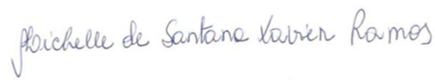 Michelle de Santana Xavier Ramos